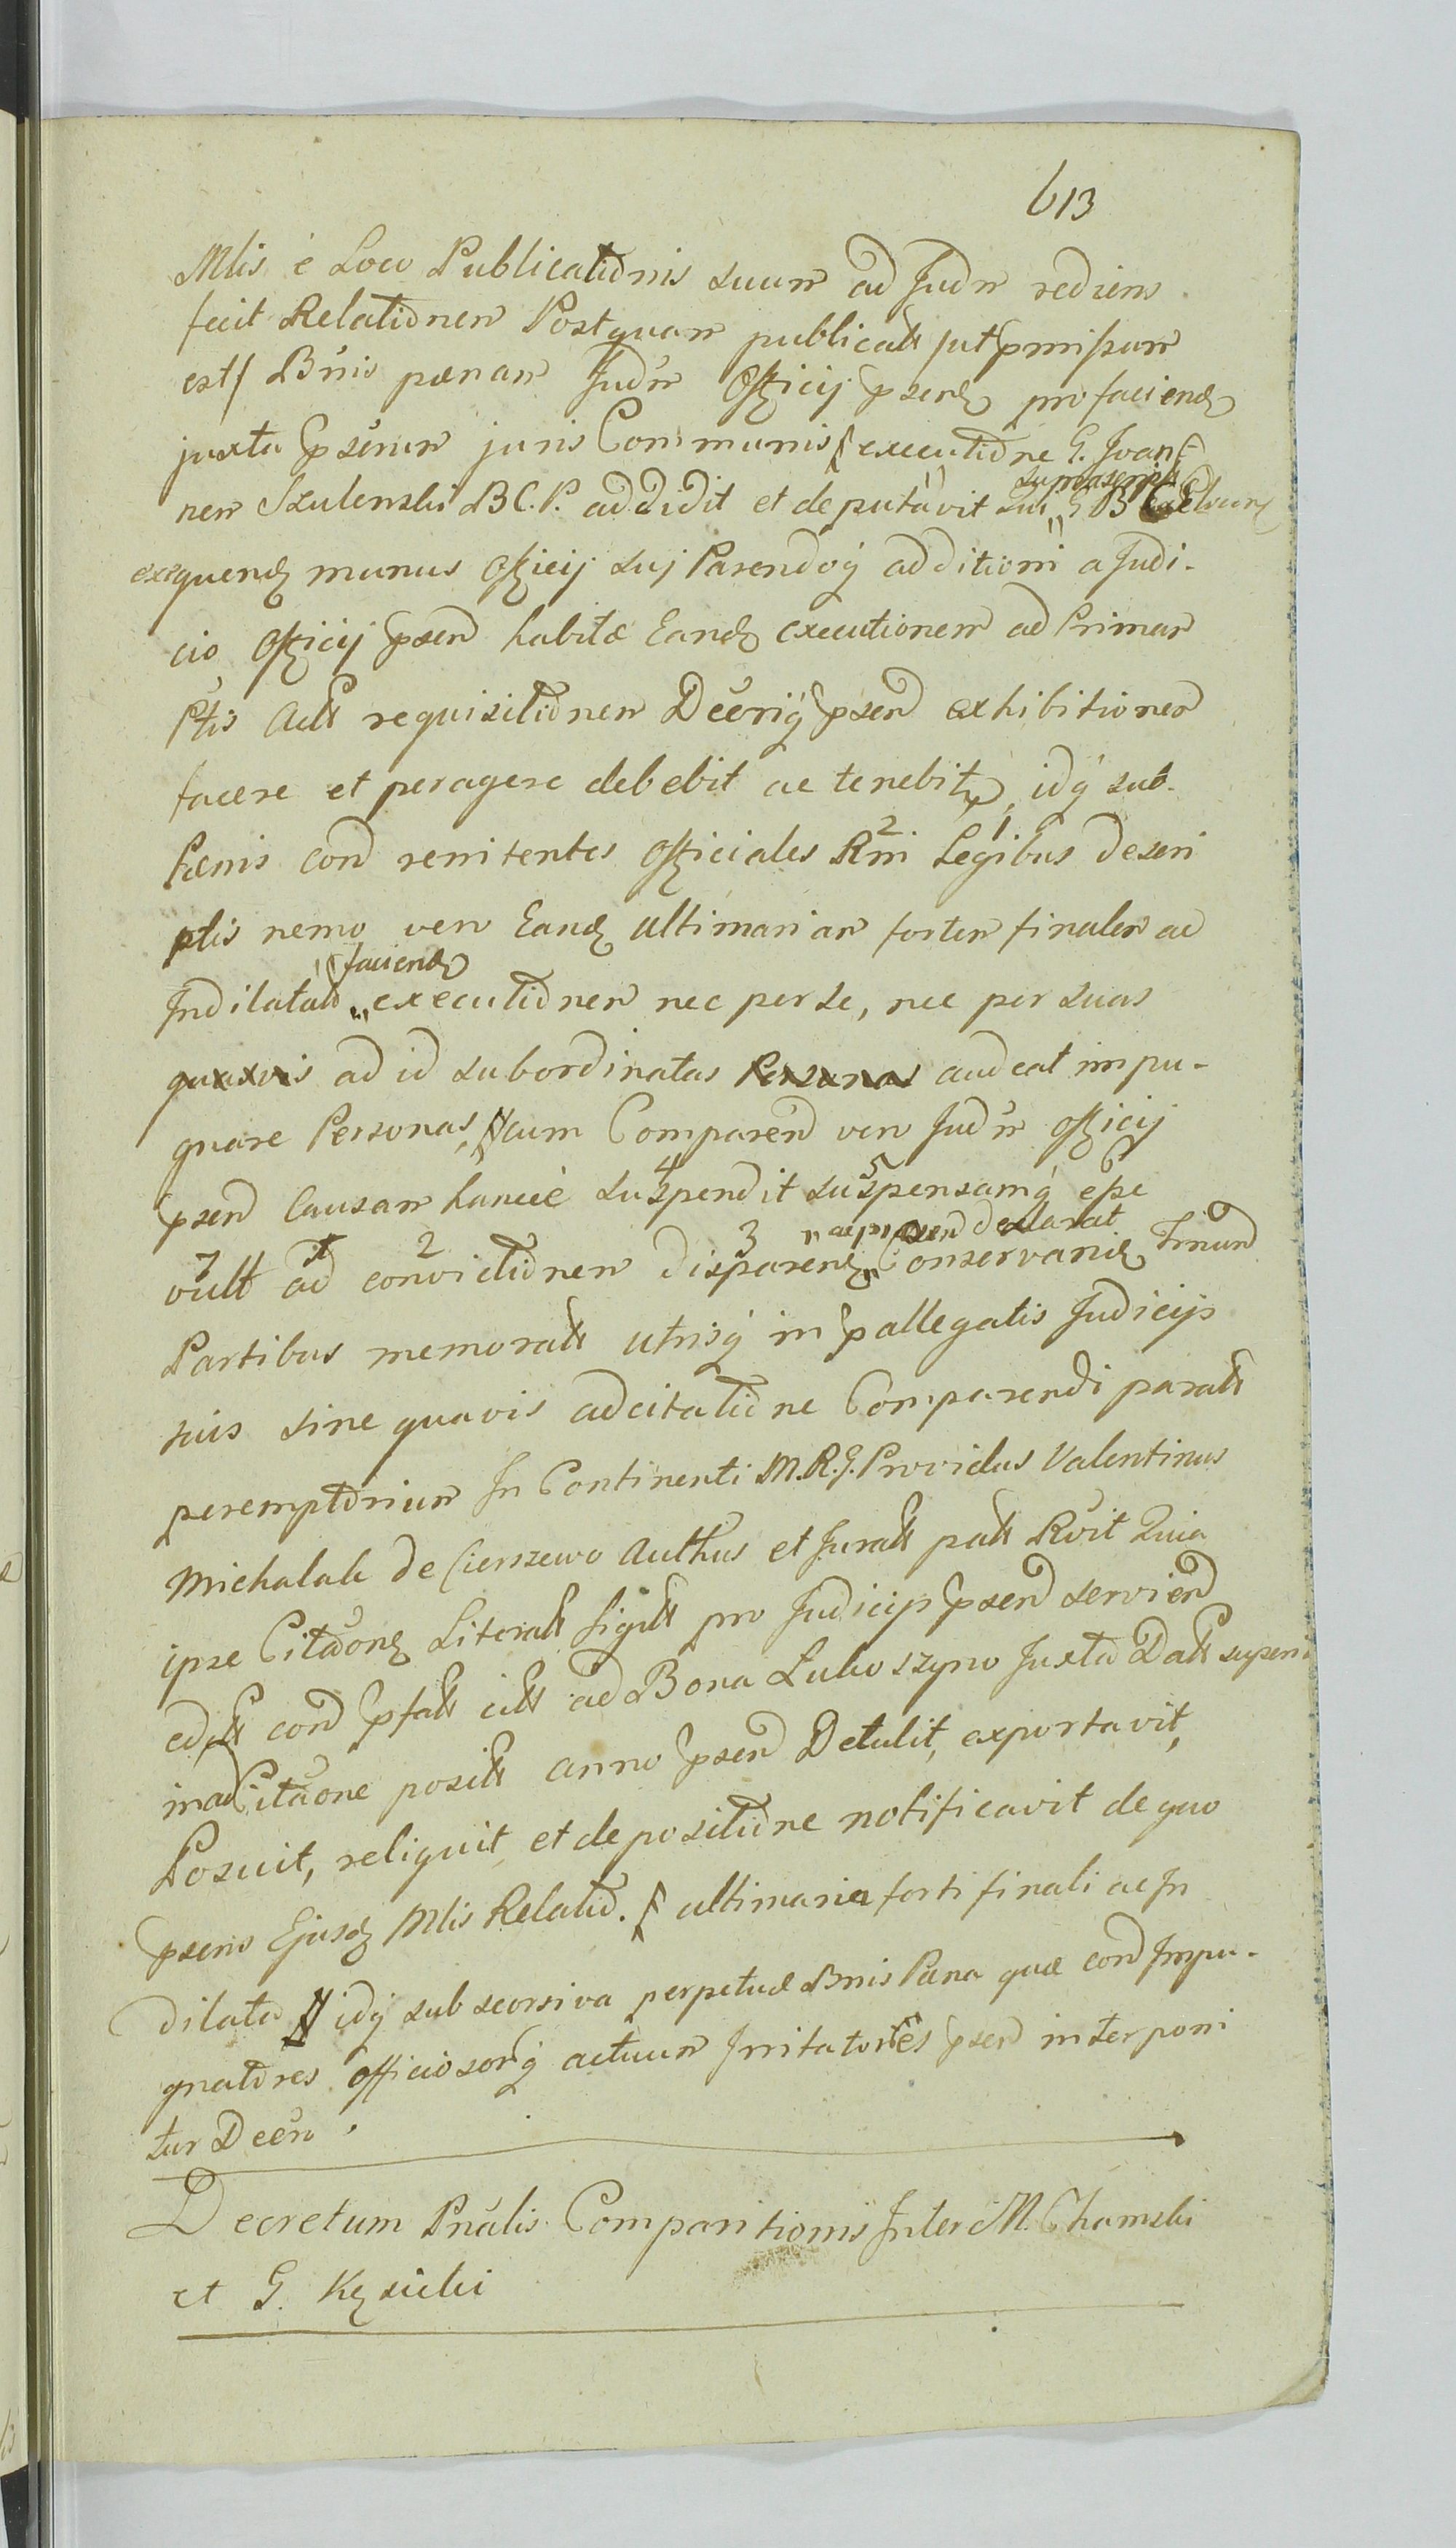 613
Mlis è Loco Publicationis suum ad Judm rediens
fecit Relationem Postquam publicatt /ut pmissum
est/ Bnis pænam Judm Officij psens pro faciend
juxta psenm juris Communis executione G. Joan-
suprascript
nem Szulenski B C. P. addidit et deputavit Qui G B C
exequend munus Officij sui Parendoq additioni a Judi-
cio Officij psend habitæ Eand executionem ad Primam
Ptis Actt requisitionem Decriq psend exhibitionem
facere et peragere debebit ac tenebit, idq sub
2 1
Pænis cond renitentes Officiales Rni Legibus descri
ptis nemo vero Eand ultimariam fortem finalem ac
faciend
Indilatam executionem nec per se, nec per suas
quasvis ad id subordinatas Personas audeat impu-
gnare Personas, cum Comparend vero Judm Officij
4 5 6
psend Causam hancce suspendit suspensamq esse
7 1 2 3 ac psend declarat
vult ad convictionem disparend Conservand Tminum
Partibus memoratt utrisq in pallegatis Judicijs
suis sine quavis adcitatione Comparendi paratt
peremptorium In Continenti M. R. G. Providus Valentinus
Michalak de Cienszewo Authus et Juratt patt Rvit Quia
ipse Citaone Literatt Sigitt pro Judicijs psend serviend
edtt cond pfatt citt ad Bona Luboszyno Juxta Datt superi
inad Citaone positt anno psend Detulit, exportavit,
Posuit, reliquit et de positione notificavit de quo
psens Ejusd Mlis Relatio. ultimaria forti finali ac In
dilata idq sub seorsiva perpetuæ Bnis Pæna quæ cond Impu-
gnatores officiosorq actuum Irritatores psend interponi
tur Decro
Decretum Pnalis Comparitionis Inter M. Chamski
et G. Kęsicki